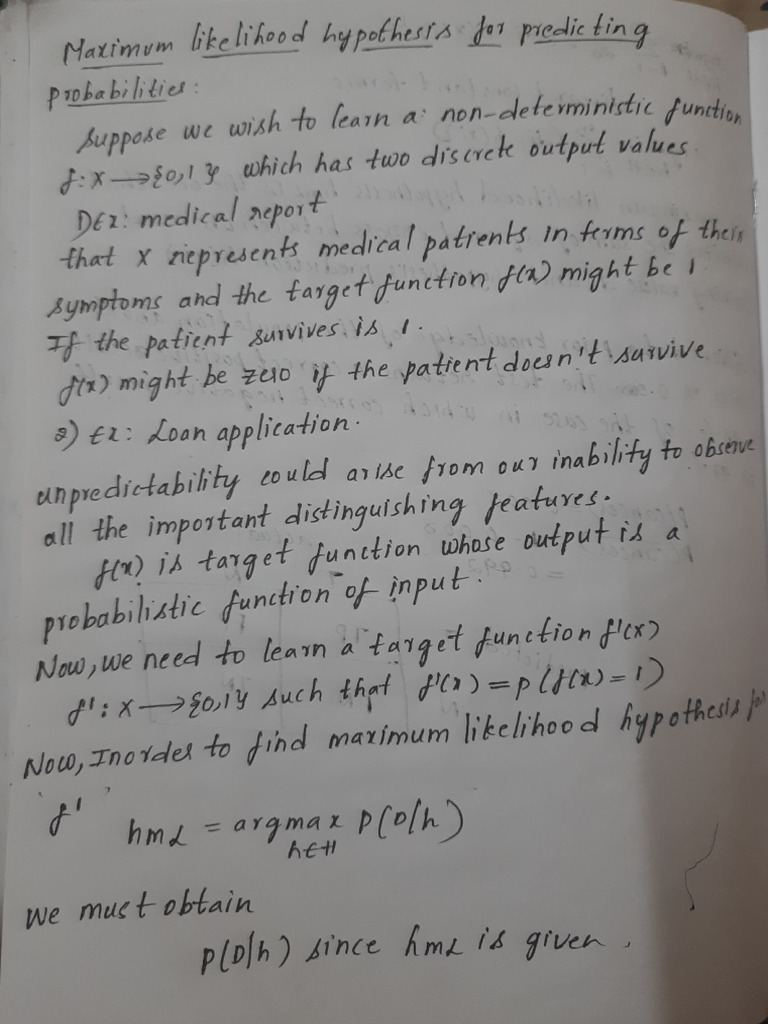 Maximum likelihood hypothesis for predicting
probabilities:
Suppose we wish to learn a non-deterministic function
f: X → {0,1} which has two discrete output values.
D Ex: medical report
that X represents medical patients in terms of their
symptoms and the target function f(x) might be 1
If the patient survives is 1.
f(x) might be zero if the patient doesn't survive
2) Ex: Loan application.
unpredictability could arise from our inability to observe
all the important distinguishing features.
f(x) is target function whose output is a
probabilistic function of input.
Now, we need to learn a target function f'(x)
f': X → {0,1} such that f'(x) = p(f(x) = 1)
Now, Inorder to find maximum likelihood hypothesis for
f'
hmL = argmax p(D/h)
h∈H
we must obtain
p(D/h) since hmL is given.